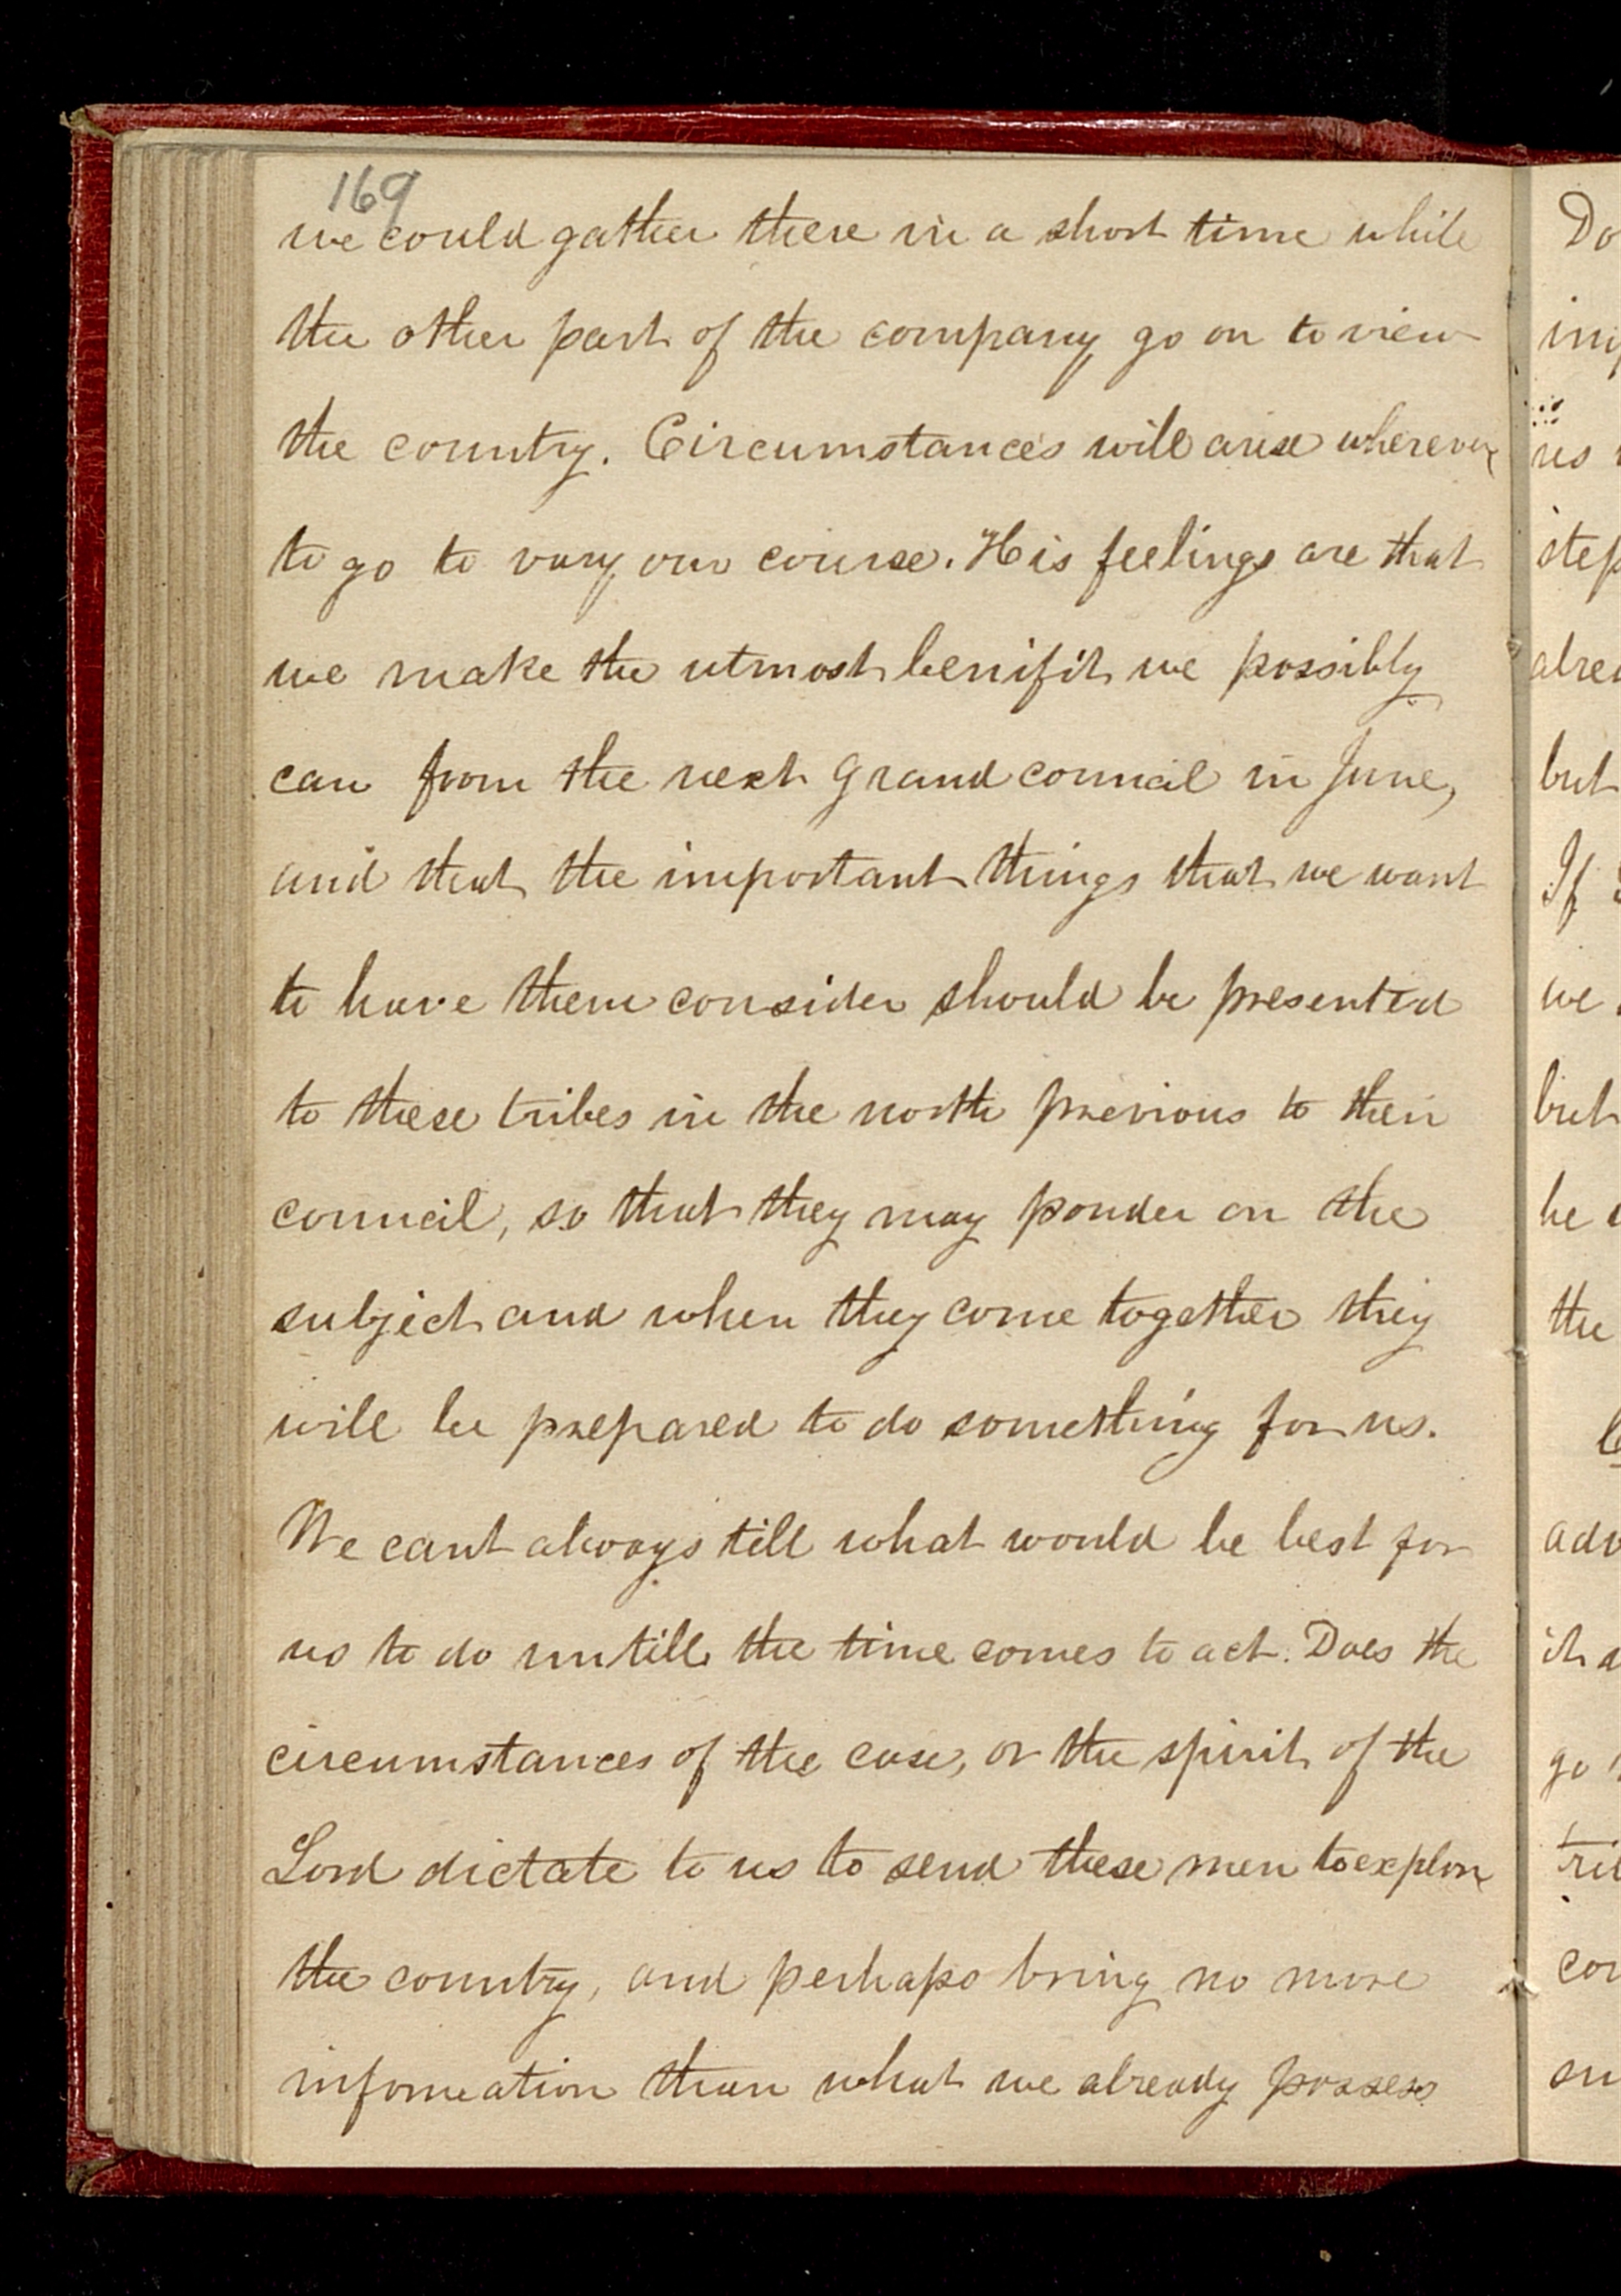 169
we could gather there in a short time while
the other part of the company go on to view
the country. Circumstances will arise wherever
to go to vary our course. His feelings are that
we make the utmost benifit we possibly
can from the next grand council in June,
and that the important things that we want
to have them consider should be presented
to these tribes in the north previous to their
council, so that they may ponder on the
subject and when they come together they
will be prepared to do something for us.
We cant always tell what would be best for
us to do untill the time comes to act. Does the
circumstances of the case, or the spirit of the
Lord dictate to us to send these men to explore
the country, and perhaps bring no more
information than what we already possess
Do
im
us
step
alrea
but
If
we
but
be
the
adv
it a
go
tri
con
su